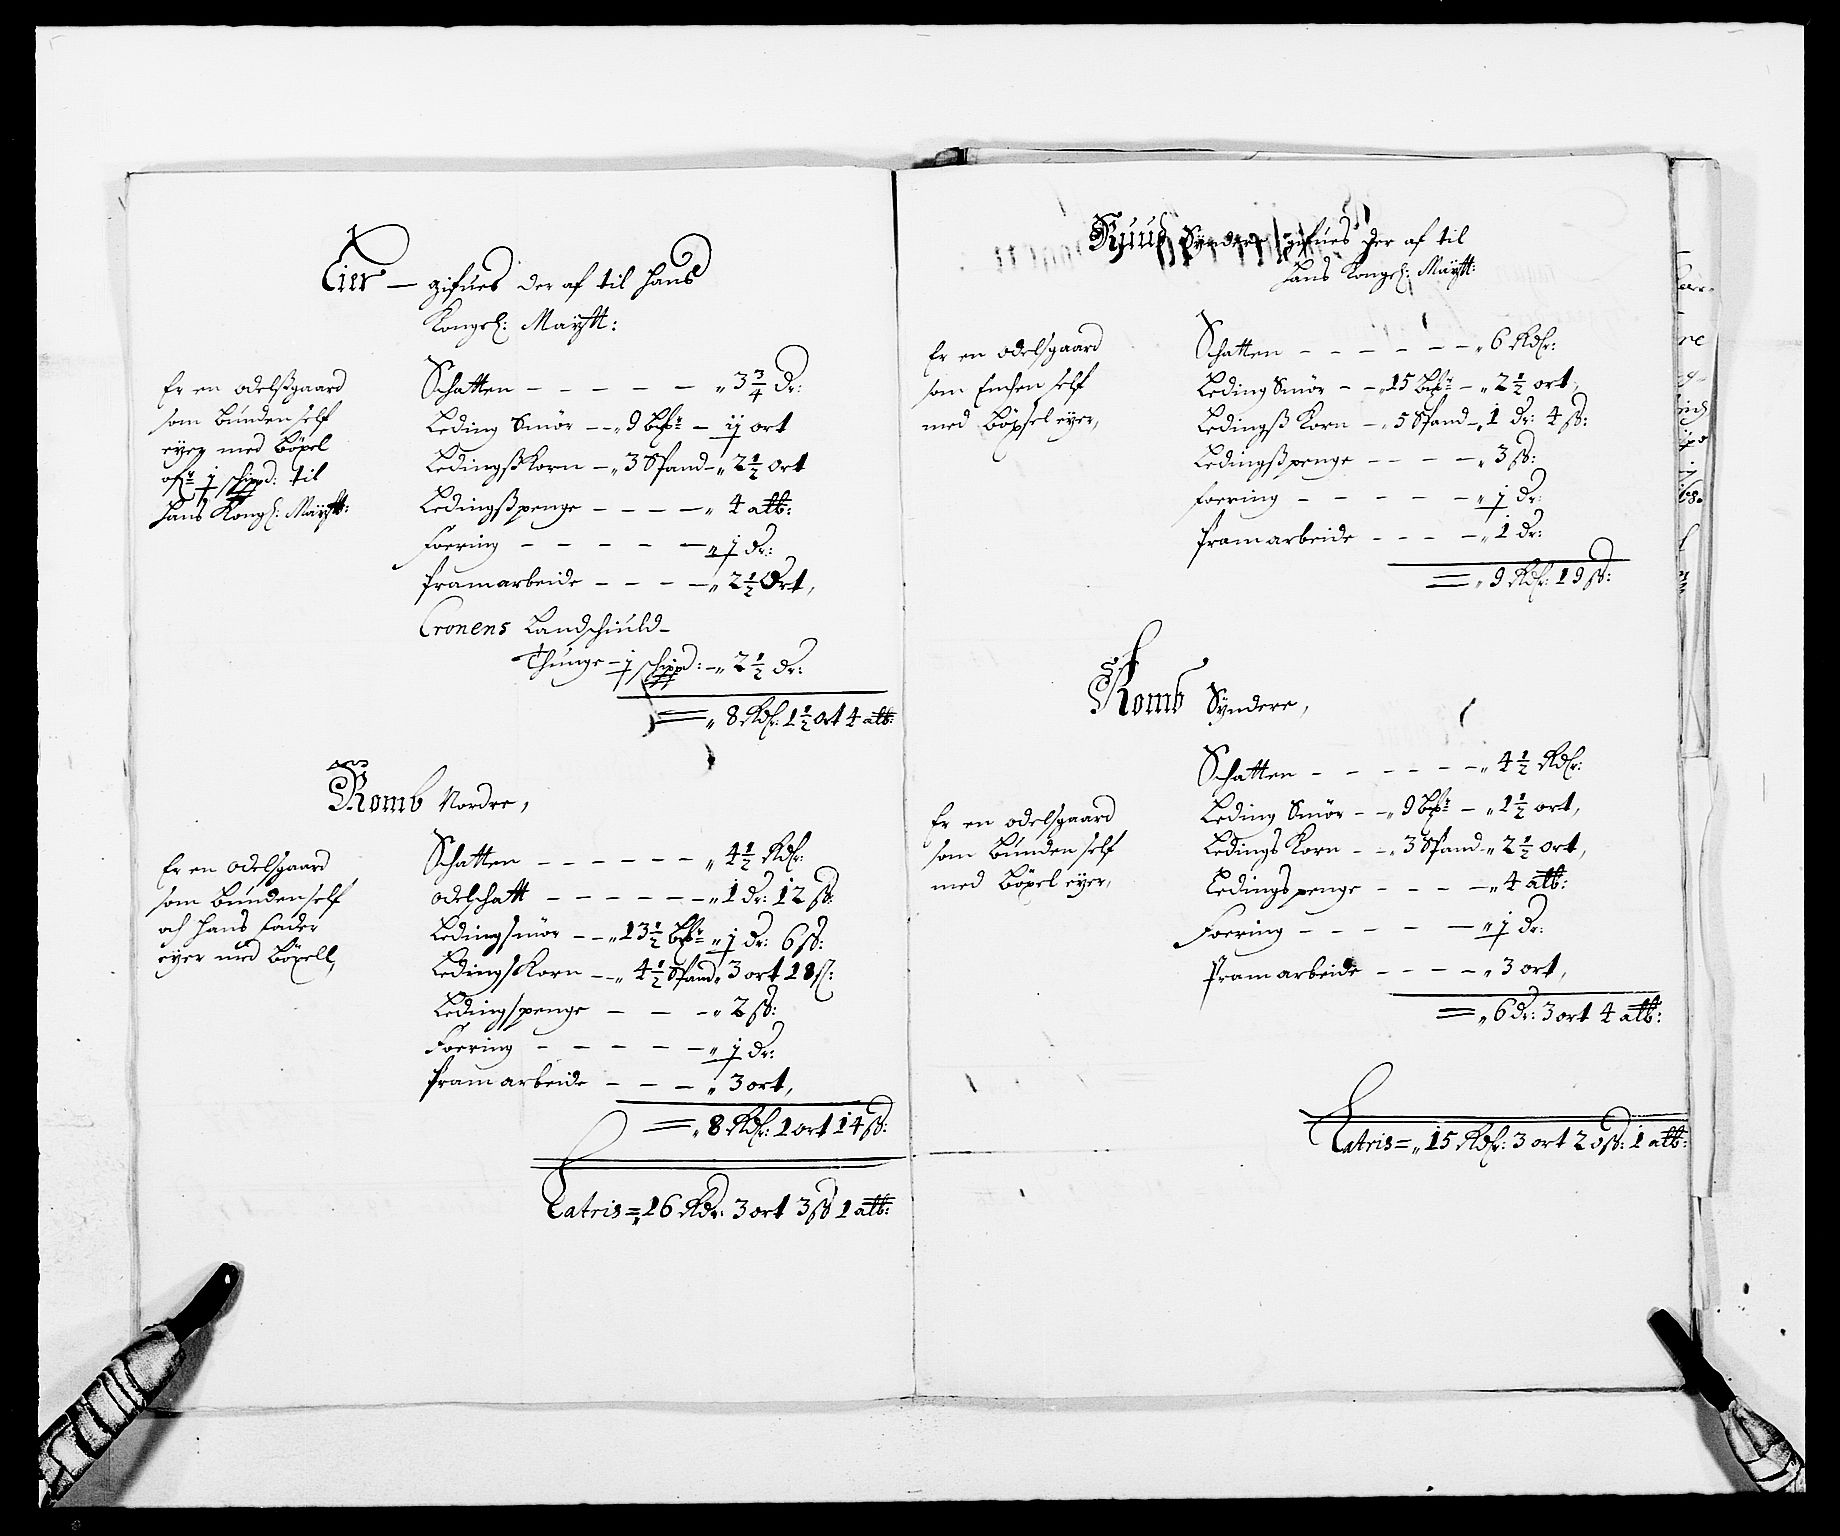 Eier — gifues der af til Hans
Kongel: Maÿtt:
Er en odelsgaard
som bunden self
eyer med böxel
1 schippd: til
Hans Kongl: Maÿtt:
Schatten - - - - - „ 3 3/4 dr:
Leding Smör - - „ 9 - 1 ort
Ledingß Korn - „ 3 Spand - „ 2 1/2 ort
Ledingßpenge - - - - „ 4 alb:
Foering - - - - - „ 1 dr:
Pramarbeide - - - - „ 2 1/2 Ort,
Cronens Landschiuld-
Thunge - 1 schippd: - „ 2 1/2 dr:
= „ 8 Rdl: 1 1/2 ort 4 alb:
Romb Nordre,
Er en odelsgaard
som bunden self
och Hans Fader
eyer med böxell,
Schatten - - - - - „ 4 1/2 Rdl:
odelschatt - - - - - „ 1 dr: 12 ß:
Ledingsmör - - „ 13 1/2 „ 1 dr: 6 ß:
Ledings Korn - - „ 4 1/2 Spand „ 3 ort 18 ß:
Ledingspenge - - - „ 2 ß:
Foering - - - - - „ 1 dr:
Pramarbeide - - - „ 3 ort,
= „ 8 Rdl: 1 ort 14 ß:
Latris = „ 16 Rdr: 3 ort 3 ß 1 alb:
Ruud Syndere gifues der af til
Hans Kongel: Maÿtt:
Er en odelsgaard
som Enchen self
med Böxsel eyer,
Schatten - - - - - „ 6 Rdl:
Leding Smör - - „ 15 - „ 2 1/2 ort,
Ledingß Korn - „ 5 Spand - „ 1 dr: 4 ß:
Ledingßpenge - - - - „ 3 ß:
Foering - - - - - „ 1 dr:
Pramarbeide - - - - „ 1 dr:
= „ 9 Rdl: 19 ß:
Romb Syndere,
Er en odelsgaard
som bunden self
med Böxel eyer,
Schatten - - - - - „ 4 1/2 Rdl:
Leding Smör - - „ 9 - „ 1 1/2 ort,
Ledings Korn - - „ 3 Spand - „ 2 1/2 ort,
Ledingspenge - - - - „ 4 alb:
Foering - - - - - „ 1 dr:
Pramarbeide - - - - „ 3 ort,
= „ 6 dr: 3 ort 4 alb:
Latris = „ 15 Rdl: 3 ort 20 ß: 1 alb: